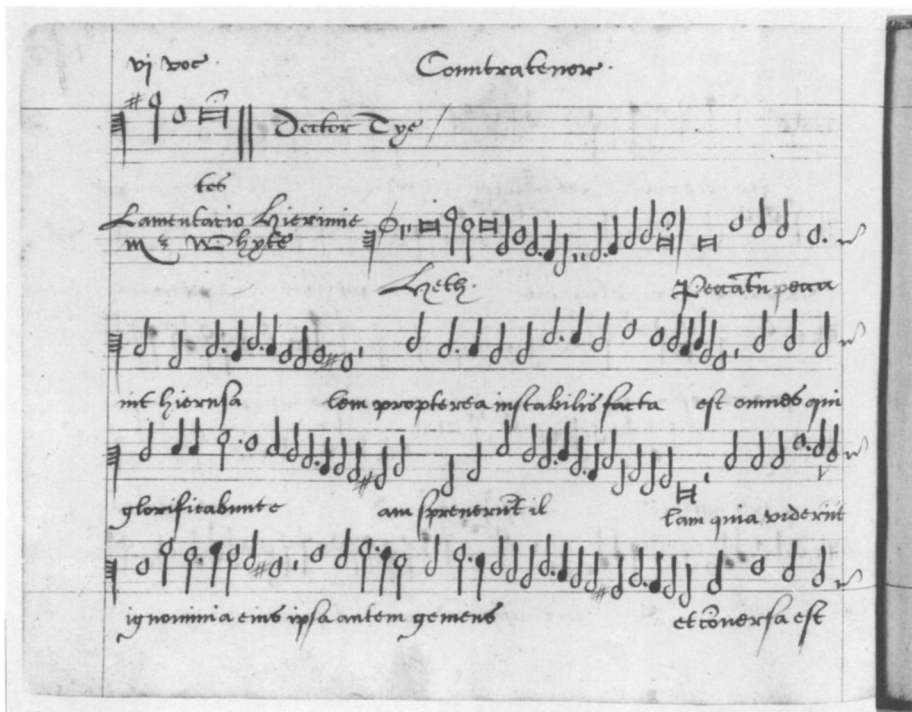 vj voc. Countratenor.
Doctor Tye
tes
Lamentacio Hierimie
mr Whyte
Heth. Peccatū pecca
vit hierusa lem propterea instabilis facta est omnes qui
glorificabunt e am spreuerūt il lam quia viderūt
ignominia eius ipsa autem gemens et cōuersa est